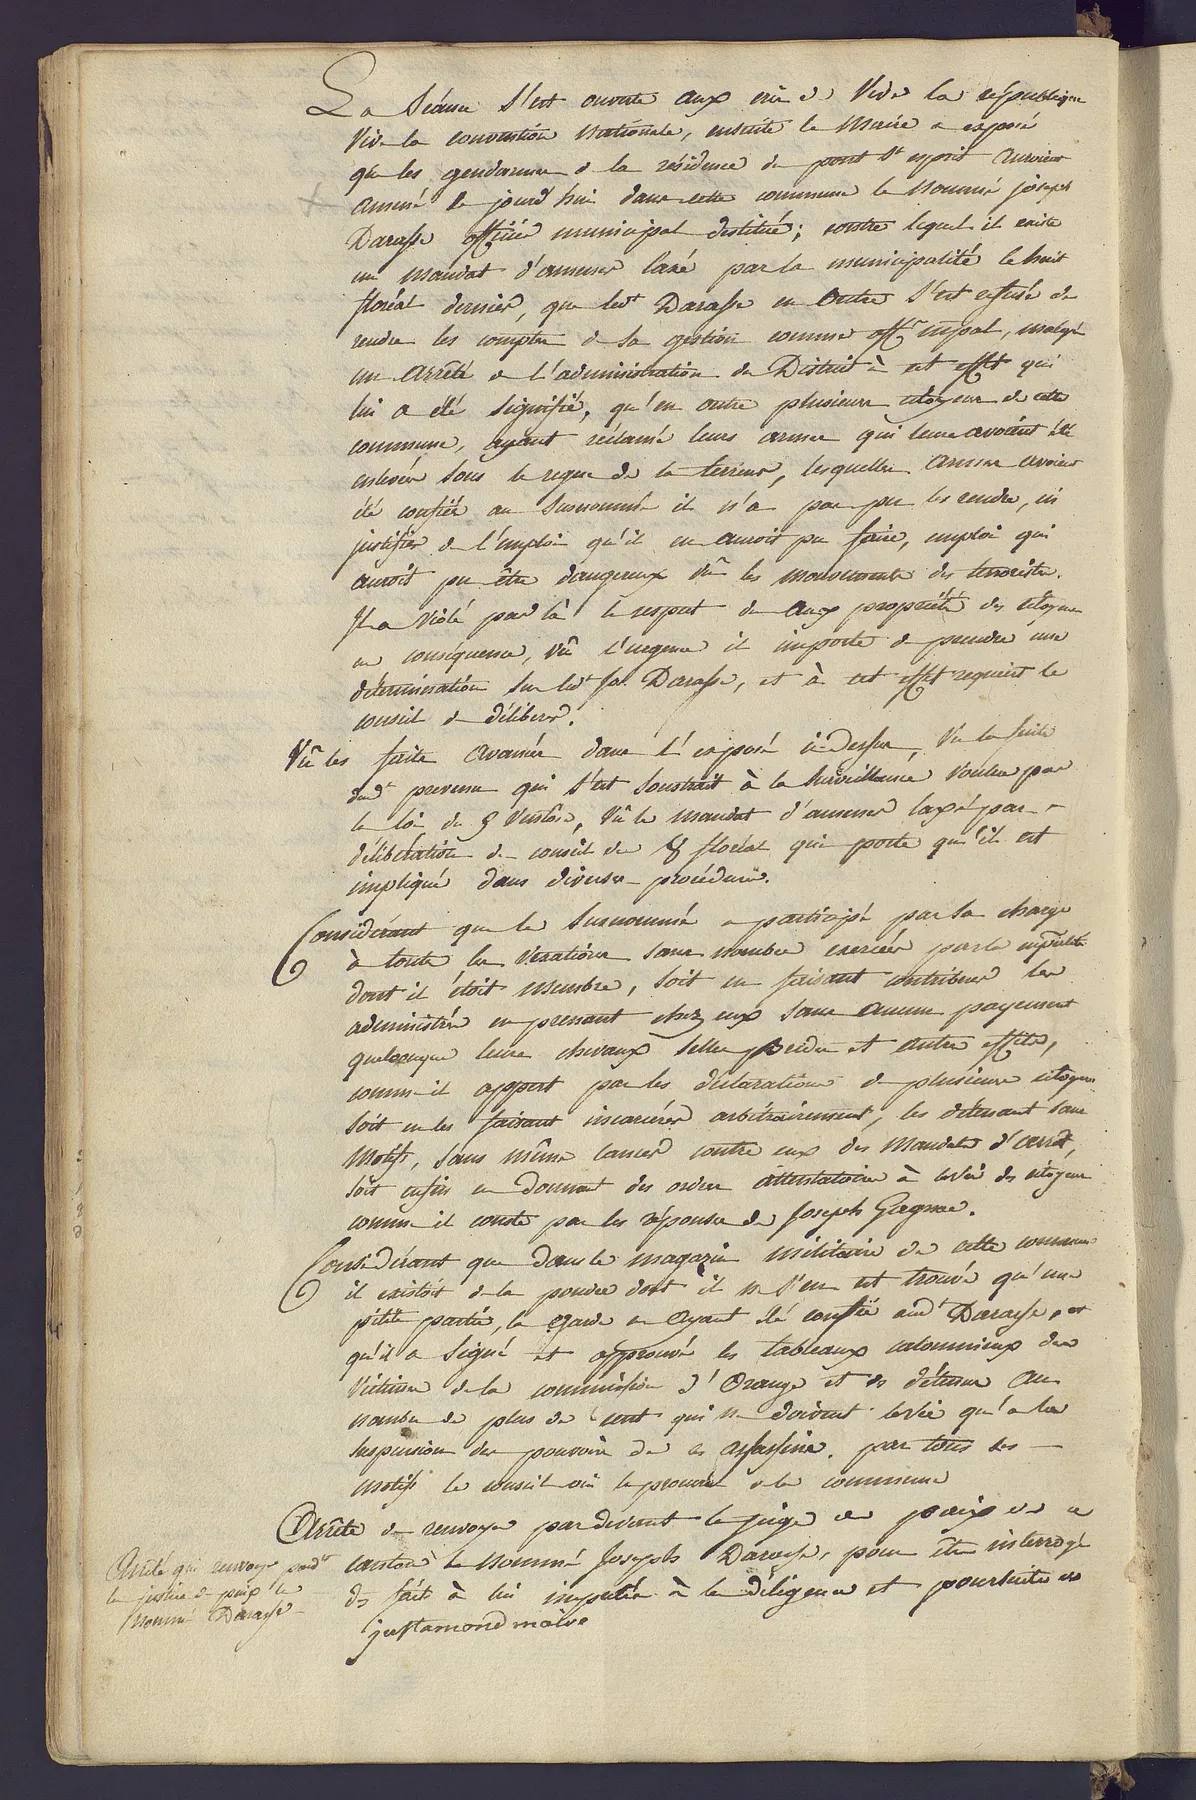 La Séance s'est ouverte aux cris de Vive la republique
Vive la convention Nationale, ensuite le Maire a exposé
que les gendarmes de la résidence du pont St esprit auroient
amené ce jourd'hui dans cette commune le nommé joseph
Darasse officier municipal destitué; contre lequel il existe
un mandat d'amener laxé par la municipalité le huit
floréal dernier, que ledt Darasse en outre s'est refusé de
rendre les comptes de sa gestion comme offer mpal, malgré
un arrêté de l'administration du District à cet effet qui
lui a été signifié, qu'en outre plusieurs citoyens de cette
commune, ayant réclamé leurs armes qui leur avoient été
enlevées sous le regne de la terreur, lesquelles armes avoient
été confiées au susnommé il n'a pas pu les rendre, ni
justifier de l'emploi qu'il en auroit pu faire, emploi qui
auroit pu être dangereux vû les mouvements des terroristes.
Il a violé par là le respect du aux propriétés des citoyens
en conséquence, vû l'urgence il importe de prendre une
détermination sur ledt Darasse, et à cet effet requiert le
conseil de délibérer.
Vû les faits avancés dans l'exposé ci-dessus, Vu la fuite
dudt prevenu qui s'est soustrait à la surveillance voulue par
la loi du 5 Ventose, Vû le mandat d'amener laxé par
délibération du conseil du 8 floréal qui porte qu'il est
impliqué dans diverses procédures.
Considérant que le susnommé a participé par sa charge
à toutes les vexations sans nombre exercées par la mpalité
dont il étoit membre, soit en faisant contribuer les
administrés en prenant chez eux sans aucun payement
quelconque leurs chevaux selles brides et autres effets,
comme il appert par les déclarations de plusieurs citoyens
soit en les faisant incarcérer arbitrairement, les détenant sans
motifs, sans même lancer contre eux des mandats d'arrêt,
soit enfin en donnant des ordres attentatoires à la vie des citoyens
comme il conste par les réponses de Joseph Gagnac.
Considérant que dans le magazin militaire de cette commune
il existoit de la poudre dont il ne s'en est trouvé qu'une
pétite partie, la garde en ayant été confiée audt Darasse, et
qu'il a signé et approuvé les tableaux calomnieux des
victimes de la commission d'Orange et des détenus au
nombre de plus de cent qui ne doivent la vie qu'à la
suspension des pouvoirs de ces assassins. par tous ces
motifs le conseil oui le procureur de la commune
Arrête de renvoyer pardevant le juge de paix de ce
canton le nommé Joseph Darasse, pour être interrogé
des faits à lui imputés à la diligence et poursuite de
justamond maire
Arrêté qui renvoye pardt
la justice de paix le
nommé Darasse